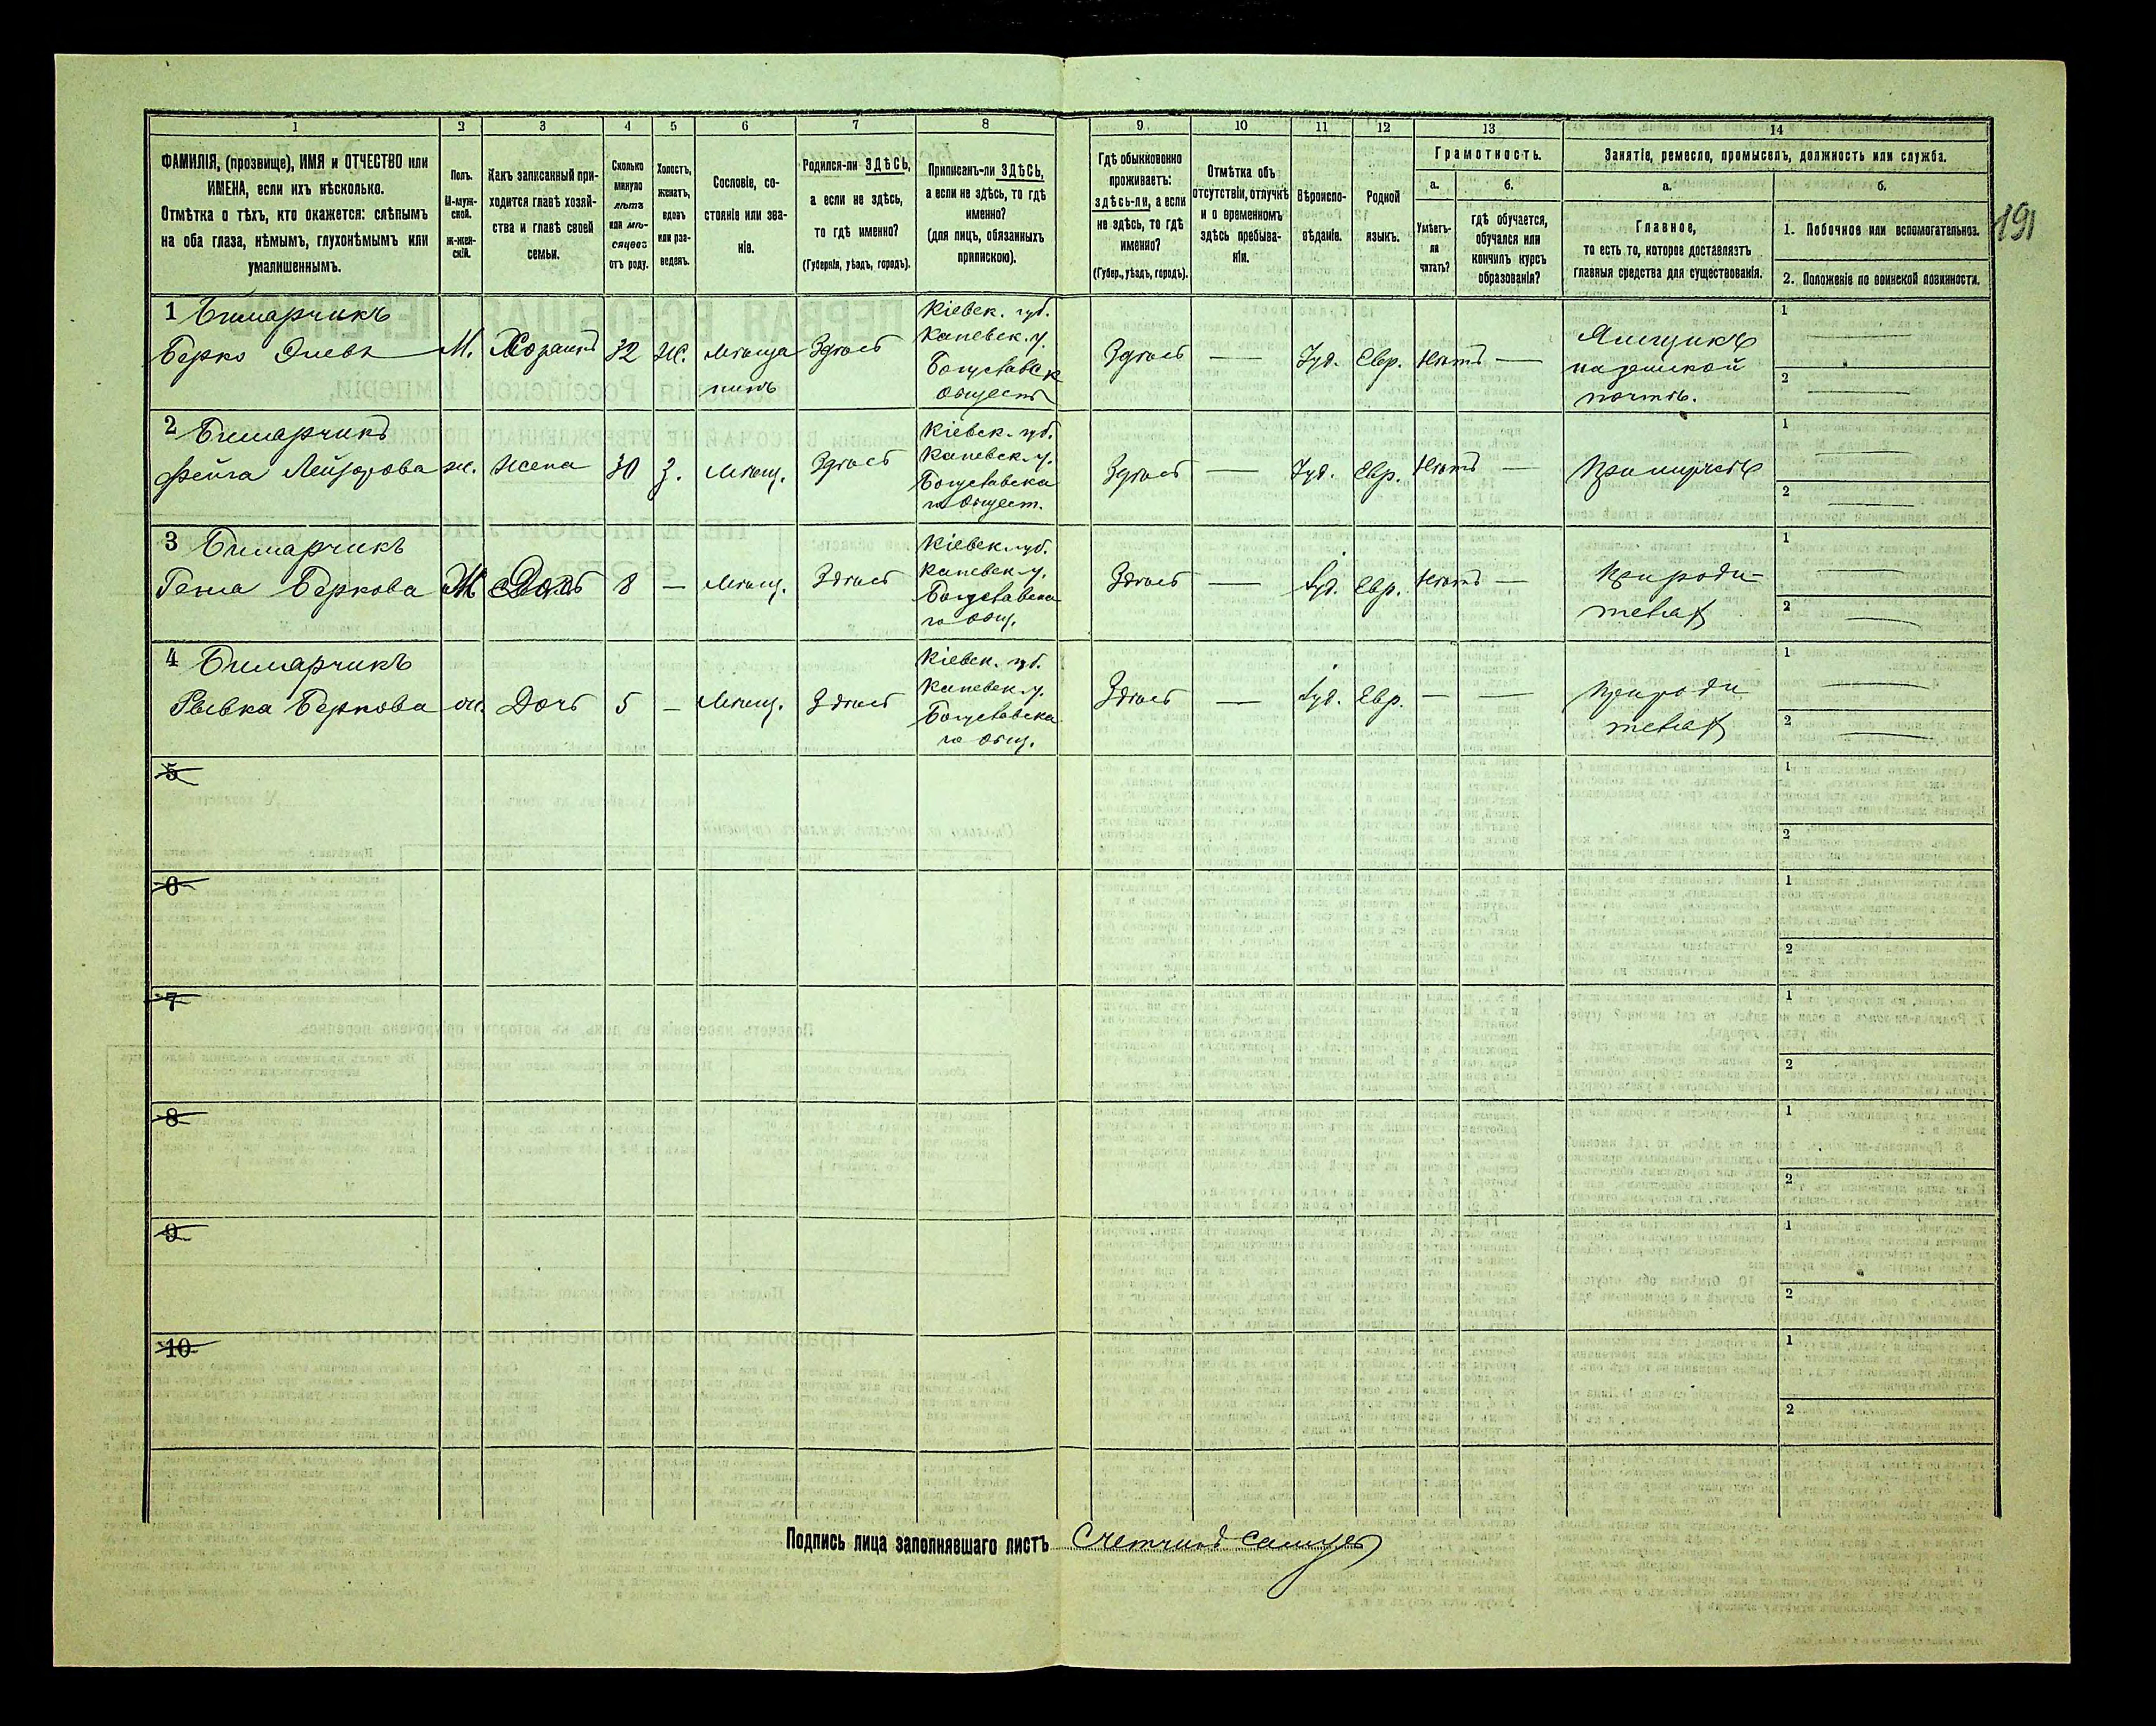 1 2 3 4 5 6 7 8 9 10 11 12 13 14
ФАМИЛІЯ, (прозвище), ИМЯ и ОТЧЕСТВО или
ИМЕНА, если ихъ нѣсколько.
Отмѣтка о тѣхъ, кто окажется: слѣпымъ
на оба глаза, нѣмымъ, глухонѣмымъ или
умалишеннымъ.
Полъ.
М-муж-
ской.
ж-жен-
скій.
Какъ записанный при-
ходится главѣ хозяй-
ства и главѣ своей
семьи.
Сколько
минуло
лѣтъ
или мѣ-
сяцевъ
отъ роду.
Холостъ,
женатъ,
вдовъ
или раз-
веденъ.
Сословіе, со-
стояніе или зва-
ніе.
Родился-ли ЗДѢСЬ,
а если не здѣсь,
то гдѣ именно?
(Губернія, уѣздъ, городъ).
Приписанъ-ли ЗДѢСЬ,
а если не здѣсь, то гдѣ
именно?
(для лицъ, обязанныхъ
припискою).
Гдѣ обыкновенно
проживаетъ:
здѣсь-ли, а если
не здѣсь, то гдѣ
именно?
(Губер., уѣздъ, городъ).
Отмѣтка объ
отсутствіи, отлучкѣ
и о временномъ
здѣсь пребыва-
ніи.
Вѣроиспо-
вѣданіе.
Родной
языкъ.
Грамотность.
а.
Умѣетъ-
ли
читать?
б.
гдѣ обучается,
обучался или
кончилъ курсъ
образованія?
Занятіе, ремесло, промыселъ, должность или служба.
а.
Главное,
то есть то, которое доставляетъ
главныя средства для существованія.
б.
1. Побочное или вспомогательное.
2. Положеніе по воинской повинности.
191
1 Бишарчикъ
Берко
М.
Хозяинъ
32
Ж.
мѣща
нинъ
Здѣсь
Кіевск. губ.
Каневск. у.
Богуславск
Обществ
Здѣсь
—
Іуд.
Евр.
Нѣтъ
—
Ямщикъ
на земской
почтѣ.
1 —
2 —
2 Бишарчикъ
Фейга Лейзорова
ж.
Жена
30
З.
Мѣщ.
Здѣсь
Кіевск. губ.
Каневск. у.
Богуславска
го Общест.
Здѣсь
—
Іуд.
Евр.
Нѣтъ
—
При мужѣ
1 —
2 —
3 Бишарчикъ
Геня Беркова
Ж
Дочь
8
—
Мѣщ.
Здѣсь
Кіевск. губ.
Каневск. у.
Богуславска
го Общ.
Здѣсь
—
Іуд.
Евр.
Нѣтъ
—
При роди-
телях
1 —
2 —
4 Бишарчикъ
Рывка Беркова
ж.
Дочь
5
—
Мѣщ.
Здѣсь
Кіевск. губ.
Каневск. у.
Богуславска
го Общ.
Здѣсь
—
Іуд.
Евр.
—
—
При роди
телях
1 —
2 —
5
1
2
6
1
2
7
1
2
8
1
2
9
1
2
10
1
2
Подпись лица заполнявшаго листъ Счетчикъ